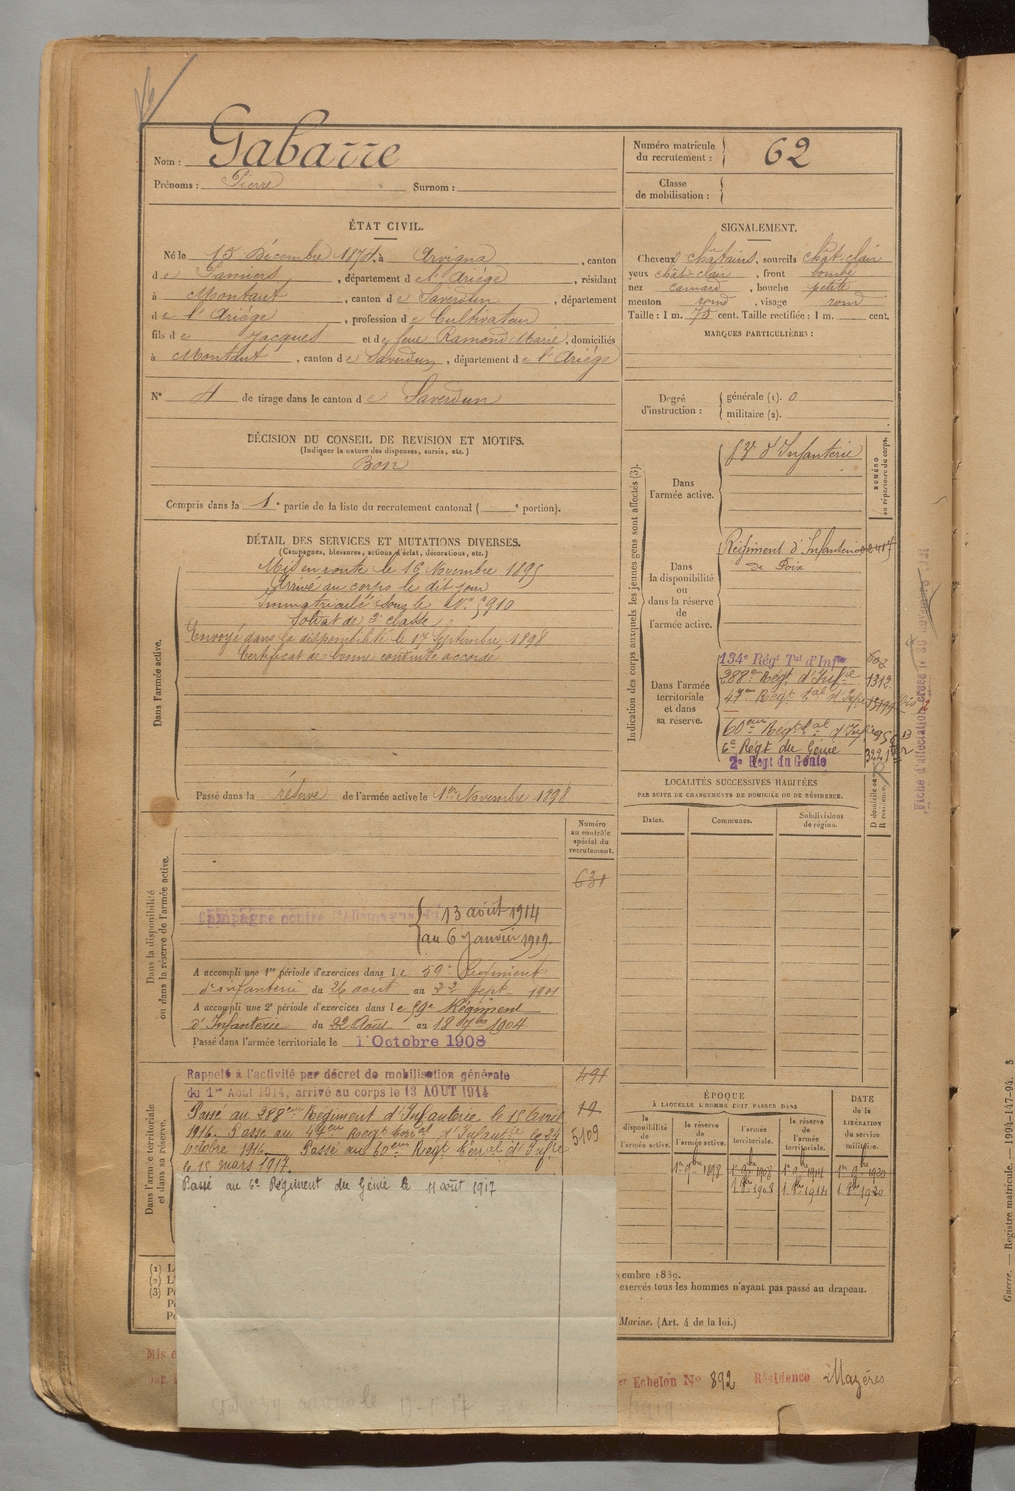 Nom : Gabarre
Prénoms : Pierre Surnom :
Numéro matricule du recrutement : 62
Classe de mobilisation :
ÉTAT CIVIL.
Né le 15 Décembre 1874, à Arvigna, canton
de Pamiers, département de l'Ariège, résidant
à Montaut, canton de Saverdun, département
de l'Ariège, profession de Cultivateur
fils de Jacques et de feue Ramond Marie, domiciliés
à Montaut, canton de Saverdun, département de l'Ariège
N° 4 de tirage dans le canton de Saverdun
SIGNALEMENT.
Cheveux châtains, sourcils chât-clair
yeux chât-clair, front bombé
nez camard, bouche petite
menton rond, visage rond
Taille : 1 m. 75 cent. Taille rectifiée : 1 m. cent.
MARQUES PARTICULIÈRES :
Degré d'instruction : générale (1). 0
militaire (2).
DÉCISION DU CONSEIL DE REVISION ET MOTIFS.
(Indiquer la nature des dispenses, sursis, etc.)
Bon
Compris dans la 1e partie de la liste du recrutement cantonal ( e portion).
DÉTAIL DES SERVICES ET MUTATIONS DIVERSES.
(Campagnes, blessures, actions d'éclat, décorations, etc.)
Dans l'armée active.
Mis en route le 16 Novembre 1895
Arrivé au corps le dit jour
Immatriculé sous le N° 5910
Soldat de 2e classe
Envoyé dans la disponibilité le 17 Septembre 1898
Certificat de bonne conduite accordé
Passé dans la réserve de l'armée active le 1er Novembre 1898
Indication des corps auxquels les jeunes gens sont affectés (3).
NUMÉRO au répertoire du corps.
Dans l'armée active.
d'Infanterie
Dans la disponibilité ou dans la réserve de l'armée active.
Régiment d'Infanterie 2417
de Foix
Dans l'armée territoriale et dans sa réserve.
134e Régt Tal d'Infie
288e Régt d'Infie 1312
47em Régt Tal d'Infie
60em Regt Tal d'Infie
6e Régt du Génie
2e Régt du Génie
LOCALITÉS SUCCESSIVES HABITÉES
PAR SUITE DE CHANGEMENTS DE DOMICILE OU DE RÉSIDENCE.
Dates. Communes. Subdivisions de région.
D domicile ou R résidence.
Dans la disponibilité ou dans la réserve de l'armée active.
Numéro au contrôle spécial du recrutement.
631
Campagne contre l'Allemagne
13 août 1914
au 6 Janvier 1919.
A accompli une 1re période d'exercices dans le 59e Régiment
d'infanterie du 26 août au 22 Sept. 1901
A accompli une 2e période d'exercices dans le 59e Régiment
d'Infanterie du 22 Août au 18 7bre 1904
Passé dans l'armée territoriale le 1 Octobre 1908
Dans l'armée territoriale et dans sa réserve.
Rappelé à l'activité par décret de mobilisation générale 491
du 1er Août 1914, arrivé au corps le 13 AOUT 1914
Passé au 288em Régiment d'Infanterie le 15 Avril
1916. Passé au 47em Regt Terral d'Infantie le 24 5109
Octobre 1916. Passé au 60em Regt Terral d'Infie
le 15 mars 1917.
Passé au 6e Régiment du Génie le 11 août 1917
ÉPOQUE
À LAQUELLE L'HOMME DOIT PASSER DANS
la disponibilité de l'armée active.
la réserve de l'armée active.
l'armée territoriale.
la réserve de l'armée territoriale.
DATE de la LIBÉRATION du service militaire.
1er 9bre 1898 1er 9bre 1908 1er 9bre 1914 1er 9bre 1920
1. 8bre 1908 1. 8bre 1914 1. 8bre 1920
(1)
(2)
(3)
exercés tous les hommes n'ayant pas passé au drapeau.
Marine. (Art. 4 de la loi.)
Echelon N° 892 Résidence Mazères
Guerre. — Registre matricule. — 1994-147-94. 3